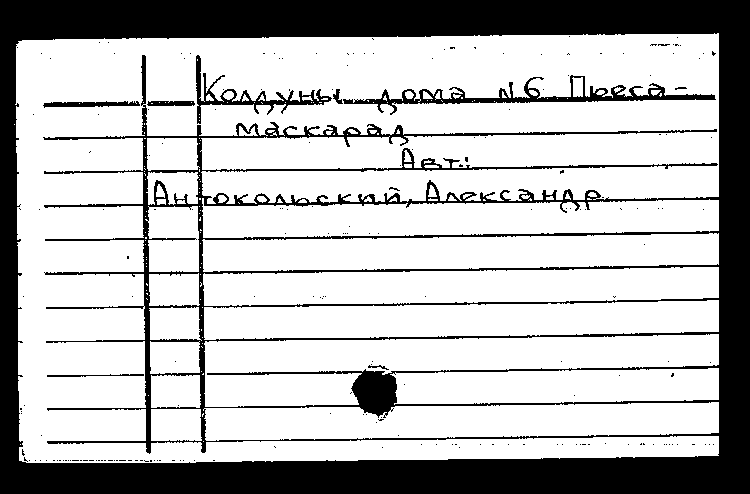 Колдуны дома №6 Пьеса-
маскарад
Авт.:
Антокольский, Александр